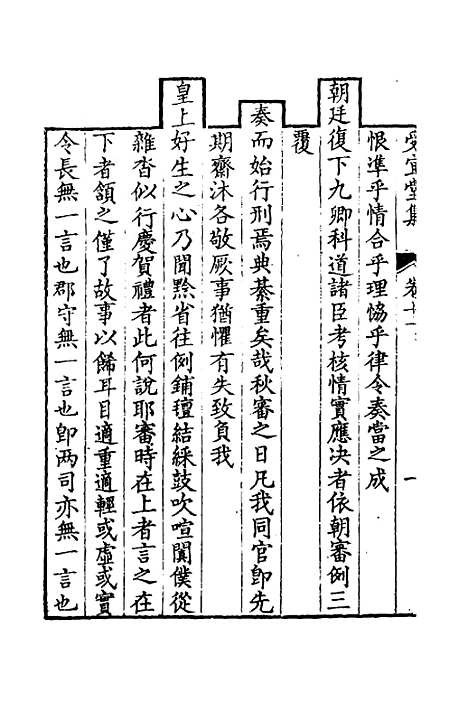 受宜堂集 卷十一 一
恨準乎情合乎理恊乎律令奏當之成
朝廷復下九卿科道諸臣考核情實應决者依朝審例三
覆
奏而始行刑焉典綦重矣哉秋審之日凡我同官卽先
期齋沐各敬厥事猶懼有失致負我
皇上好生之心乃聞黔省往例鋪氊結綵鼓吹喧闐僕從
雜沓似行慶賀禮者此何說耶審時在上者言之在
下者頷之僅了故事以餙耳目適重適輕或虛或實
令長無一言也郡守無一言也卽两司亦無一言也